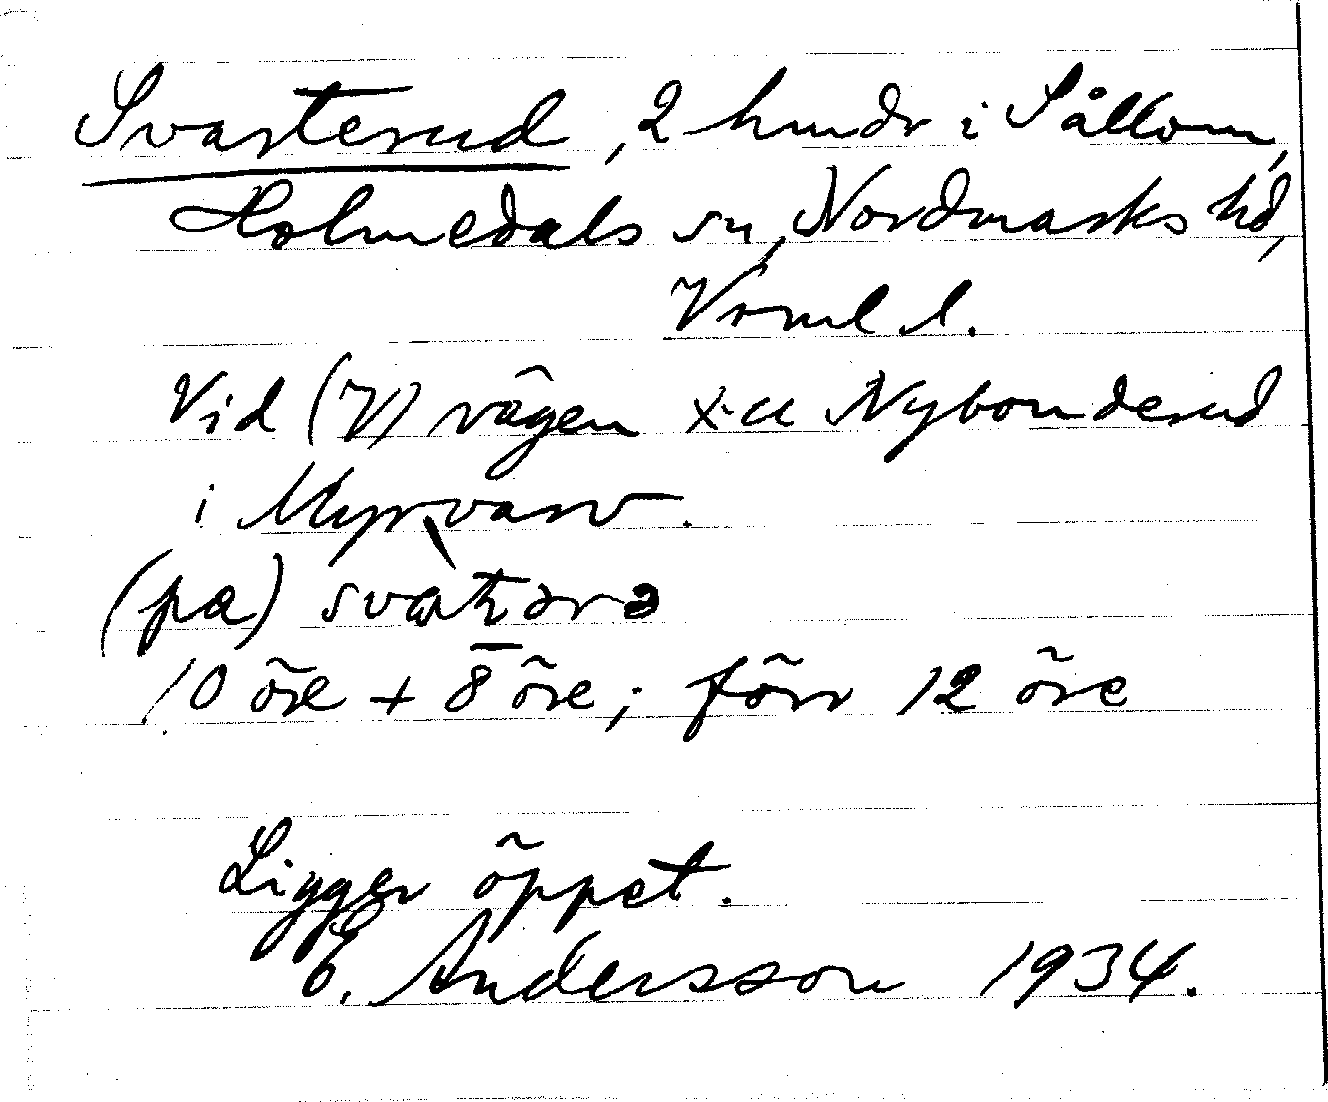 Svarterud, 2 hmdr i Sållom,
Holmedals sn, Nordmarks hd,
Vrml l.
Vid (V) vägen t. u Nybonderud
i Myrvarv.
(pa)
10 öre + 8 öre; förr 12 öre
Ligger öppet.
E. Andersson 1934.